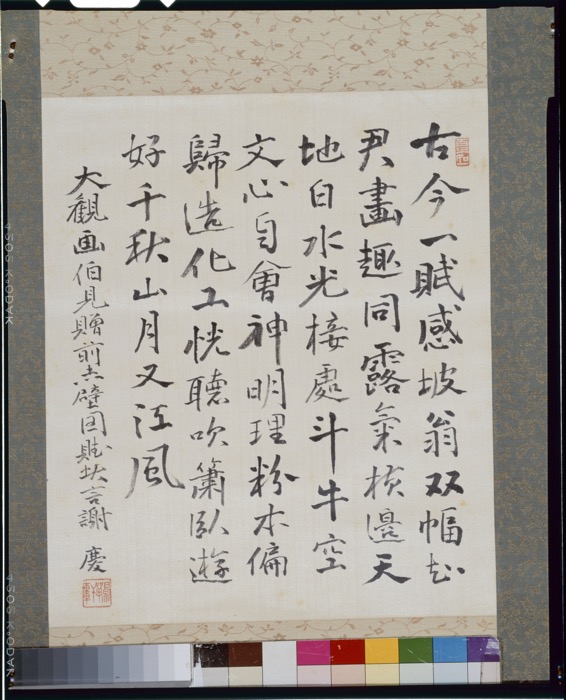 古今一賦感坡翁双幅知
君畫趣同露氣横邊天
地白水光接處斗牛空
文心自會神明理粉本偏
歸造化工恍聴吹簫臥遊
好千秋山月又江風
大観画伯見贈前赤壁図賦言謝 慶
KODAK